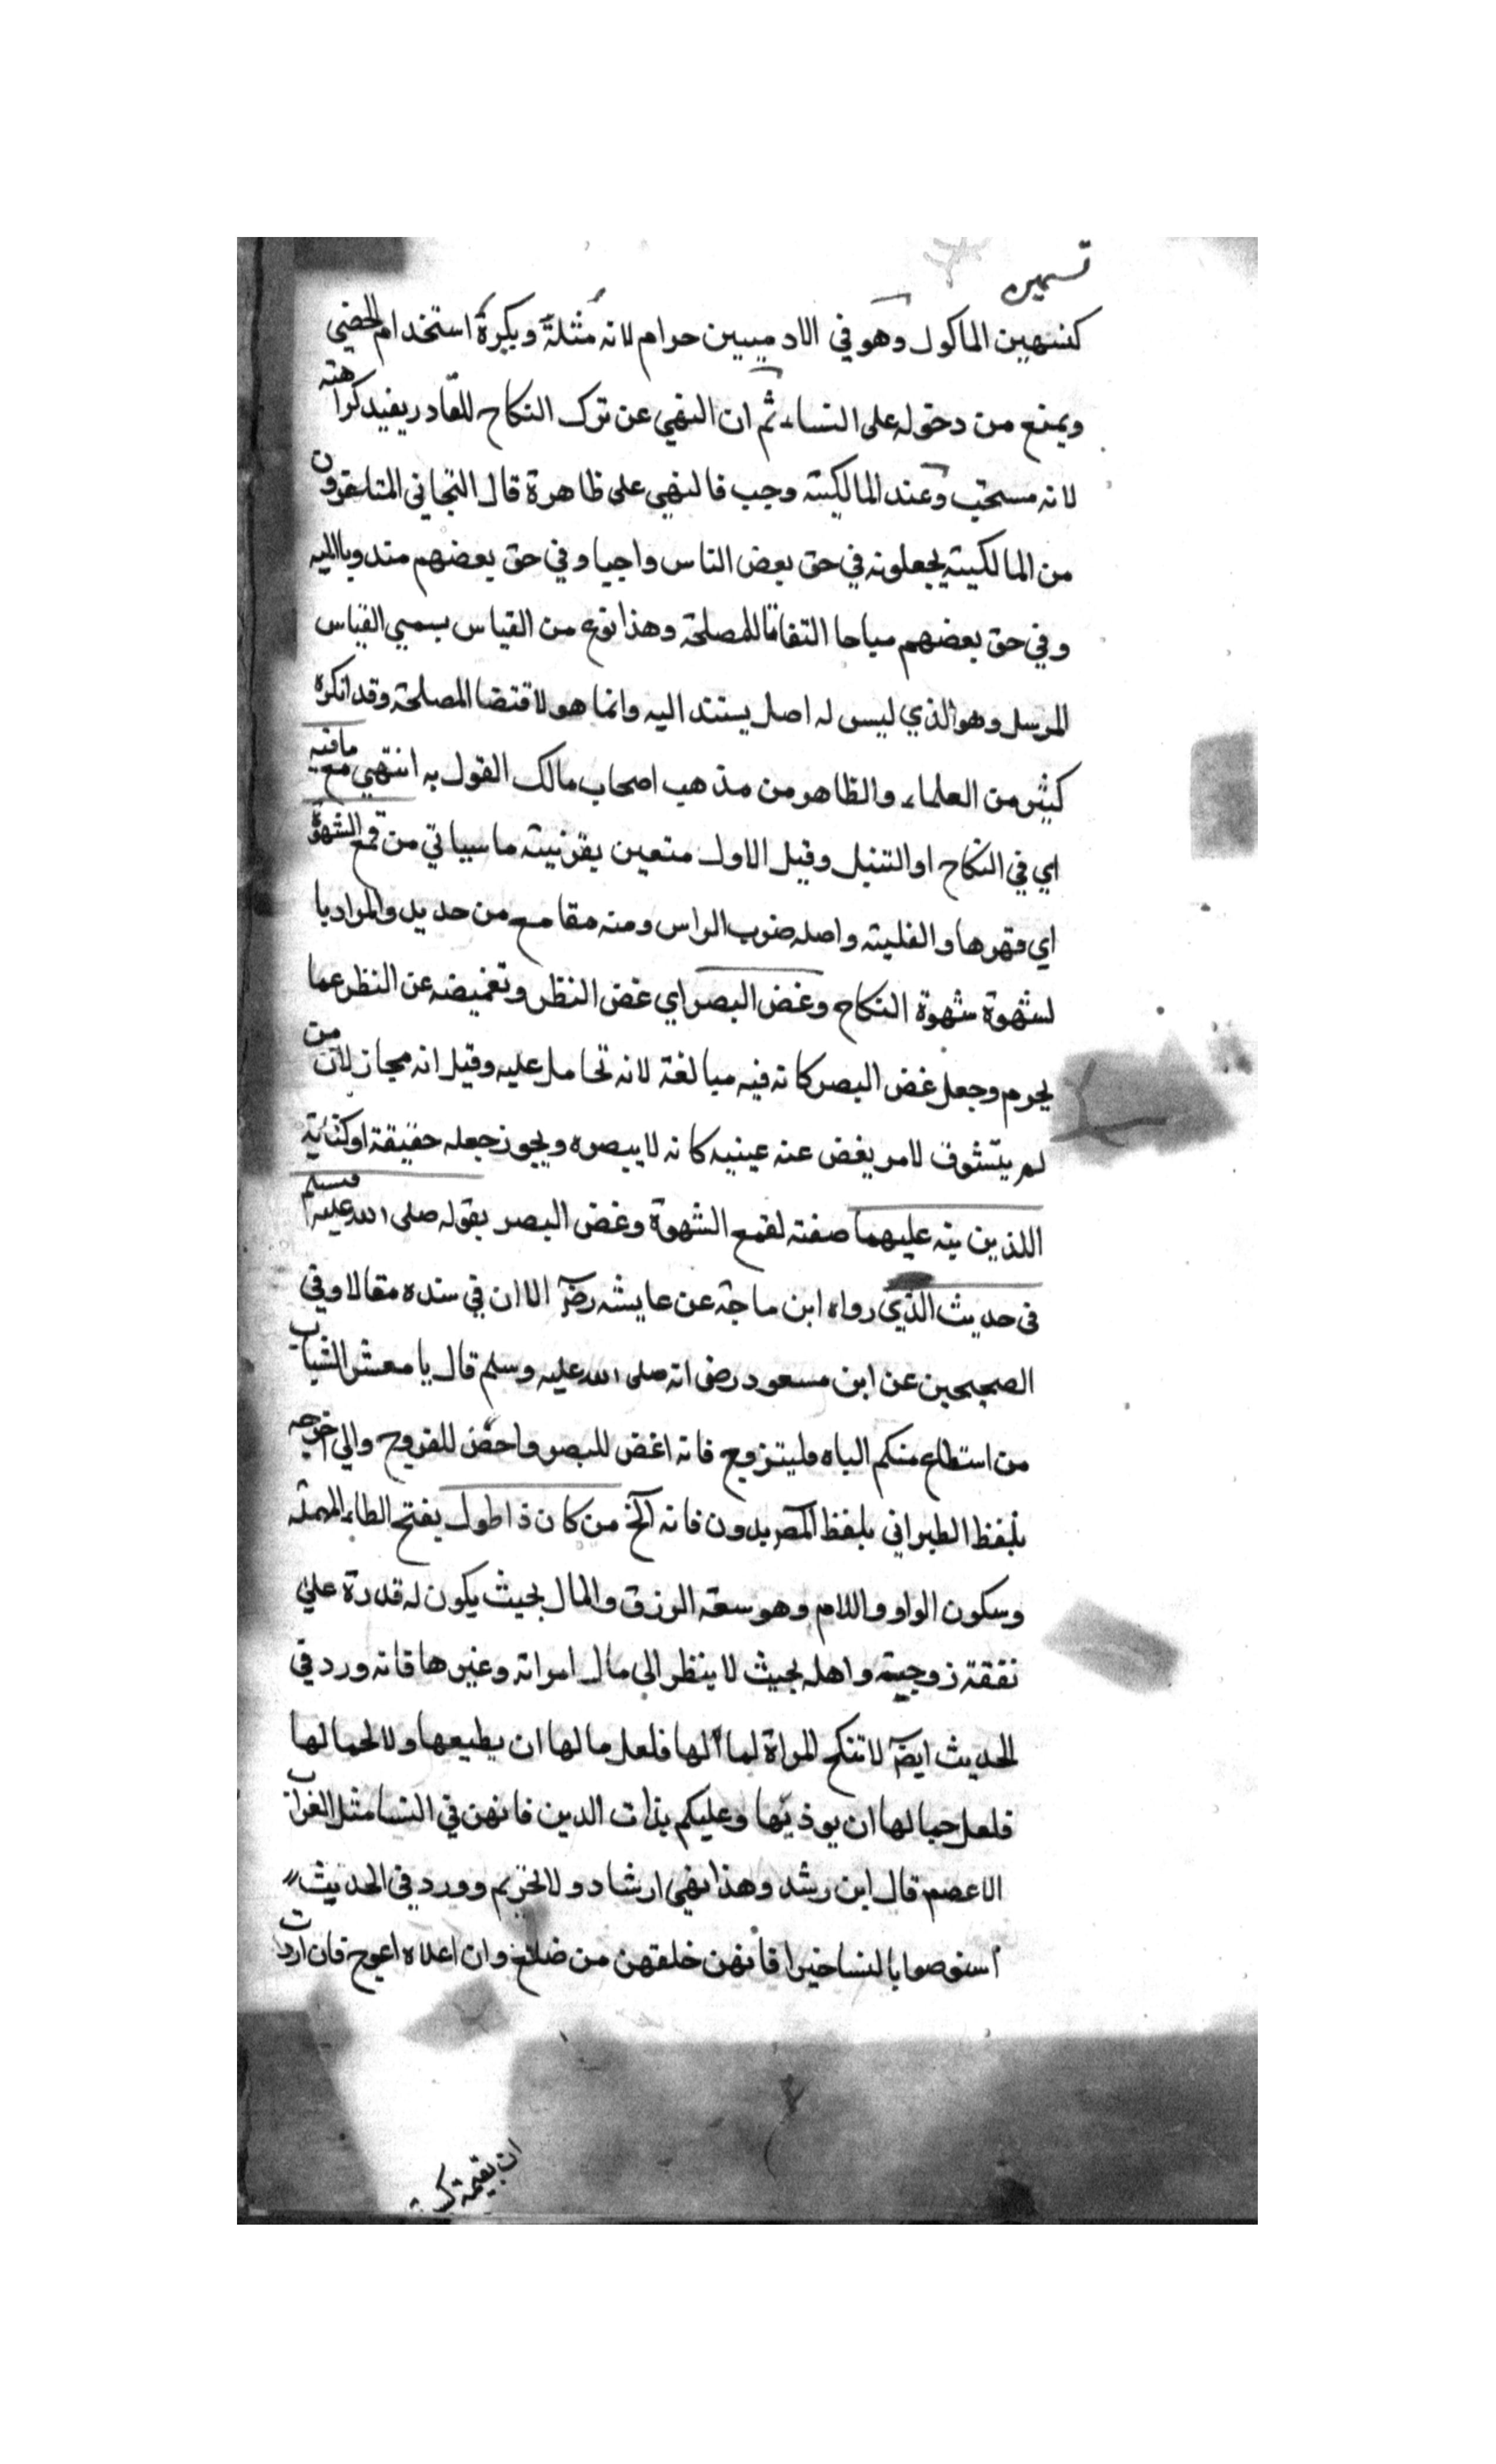 تسمين
كتسهين الماكول وهو في الادميين حرام لانه مثلة ويكره استخدام الخصي
ويمنع من دخوله على النساء ثم ان النهي عن ترك النكاح للقادر يفيد كراهته
لانه مستحب وعند المالكية وجب فالنهي على ظاهرة قال التجاني المتاخرون
من المالكية يجعلونه في حق بعض الناس واجبا وفي حق بعضهم مندوبا اليه
وفي حق بعضهم مباحا التفاتا للمصلحة وهذا نوع من القياس يسمي القياس
المرسل وهو الذي ليس له اصل يستند اليه وانما هو لاقتضا المصلحة وقد انكره
كثير من العلماء والظاهر من مذهب اصحاب مالك القول به انتهي مع مافيه
اي في النكاح او التبتل وقيل الاول متعين بقرنية ما سياتي من قمع الشهوة
اي قهرها والغلبة واصله ضرب الراس ومنه مقامع من حديد والمراد با
لشهوة شهوة النكاح وغض البصر اي غض النظر وتغميضه عن النظر عما
يحرم وجعل غض البصر كانه فيه مبالغة لانه تحامل عليه وقيل انه مجاز لان من
لم يتشوف لامر يغض عنه عينيه كانه لا يبصره ويجوز جعله حقيقة او كناية
اللذين نبه عليهما صفته لقمع الشهوة وغض البصر بقوله صلى الله عليه وسلم
في حديث الذي رواه ابن ماجة عن عايشه رضي الا ان في سنده مقالا وفي
الصحيحين عن ابن مسعود رضي انه صلى الله عليه وسلم قال يا معشر الشباب
من استطاع منكم الباه فليتزوج فانه اغض للبصر واحصن للفروج والي اخرجه
بلفظ الطبراني بلفظ المصر بدون فانه الخ من كان ذا طول بفتح الطاء المهملة
وسكون الواو واللام وهو سعة الرزق والمال بحيث يكون له قدرة علي
نفقة زوجيته واهله بحيث لا ينظر الى مال امراته وغيرها فانه ورد في
الحديث ايضا لا تنكح المراة لما لها فلعل مالها ان يطيعها ولا لجمالها
فلعل جمالها ان يوذيها وعليكم بذات الدين فانهن في النسا مثل الغراب
الاعصم قال ابن رشد وهذا نهي ارشاد ولا تحريم وورد في الحديث
استوصوا بالنسا خيرا فانهن خلقهن من ضلع وان اعلاه اعوج فان اردت
ان بقيمة